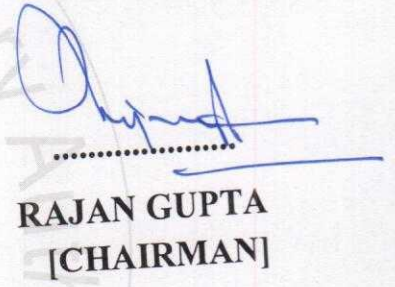 RAJAN GUPTA
[CHAIRMAN]